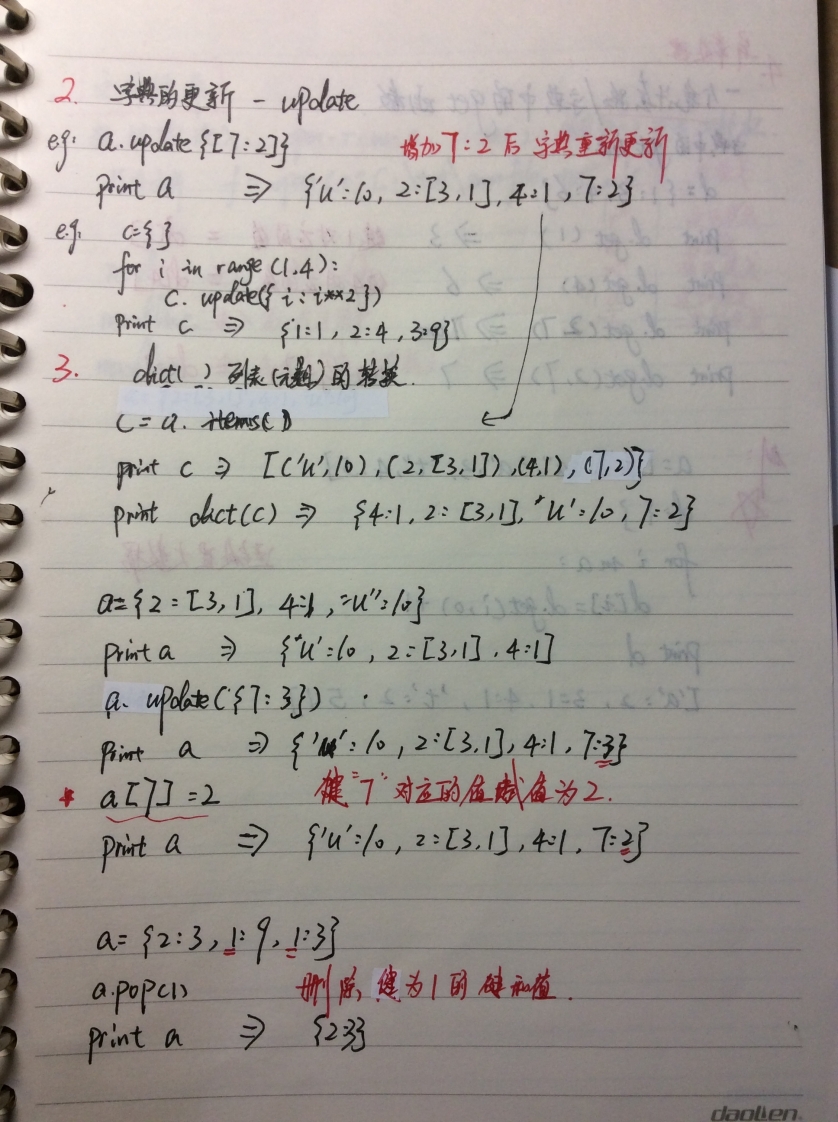 2. 字典的更新 - update
eg: a.update{[7:2]} 增加7:2后 字典重新更新
print a ⇒ {'u':10, 2:[3,1], 4:1, 7:2}
e.g. c={}
for i in range(1,4):
c. update({i:i**2})
print c ⇒ {1:1, 2:4, 3:9}
3. dict( ) 列表(元组)的转换.
c = a. items()
print c ⇒ [('u',10),(2,[3,1]),(4,1),(7,2)]
print dict(c) ⇒ {4:1, 2:[3,1], 'u':10, 7:2}
a={2:[3,1], 4:1, "u":10}
print a ⇒ {'u':10, 2:[3,1], 4:1]
a. update({7:3})
print a ⇒ {'u':10, 2:[3,1], 4:1, 7:3}
* a[7]=2 键"7"对应的值赋值为2.
print a ⇒ {'u':10, 2:[3,1], 4:1, 7:2}
a={2:3, 1:9, 1:3}
a.pop(1) 删除 键为1的键和值.
print a ⇒ {2:3}
daolien